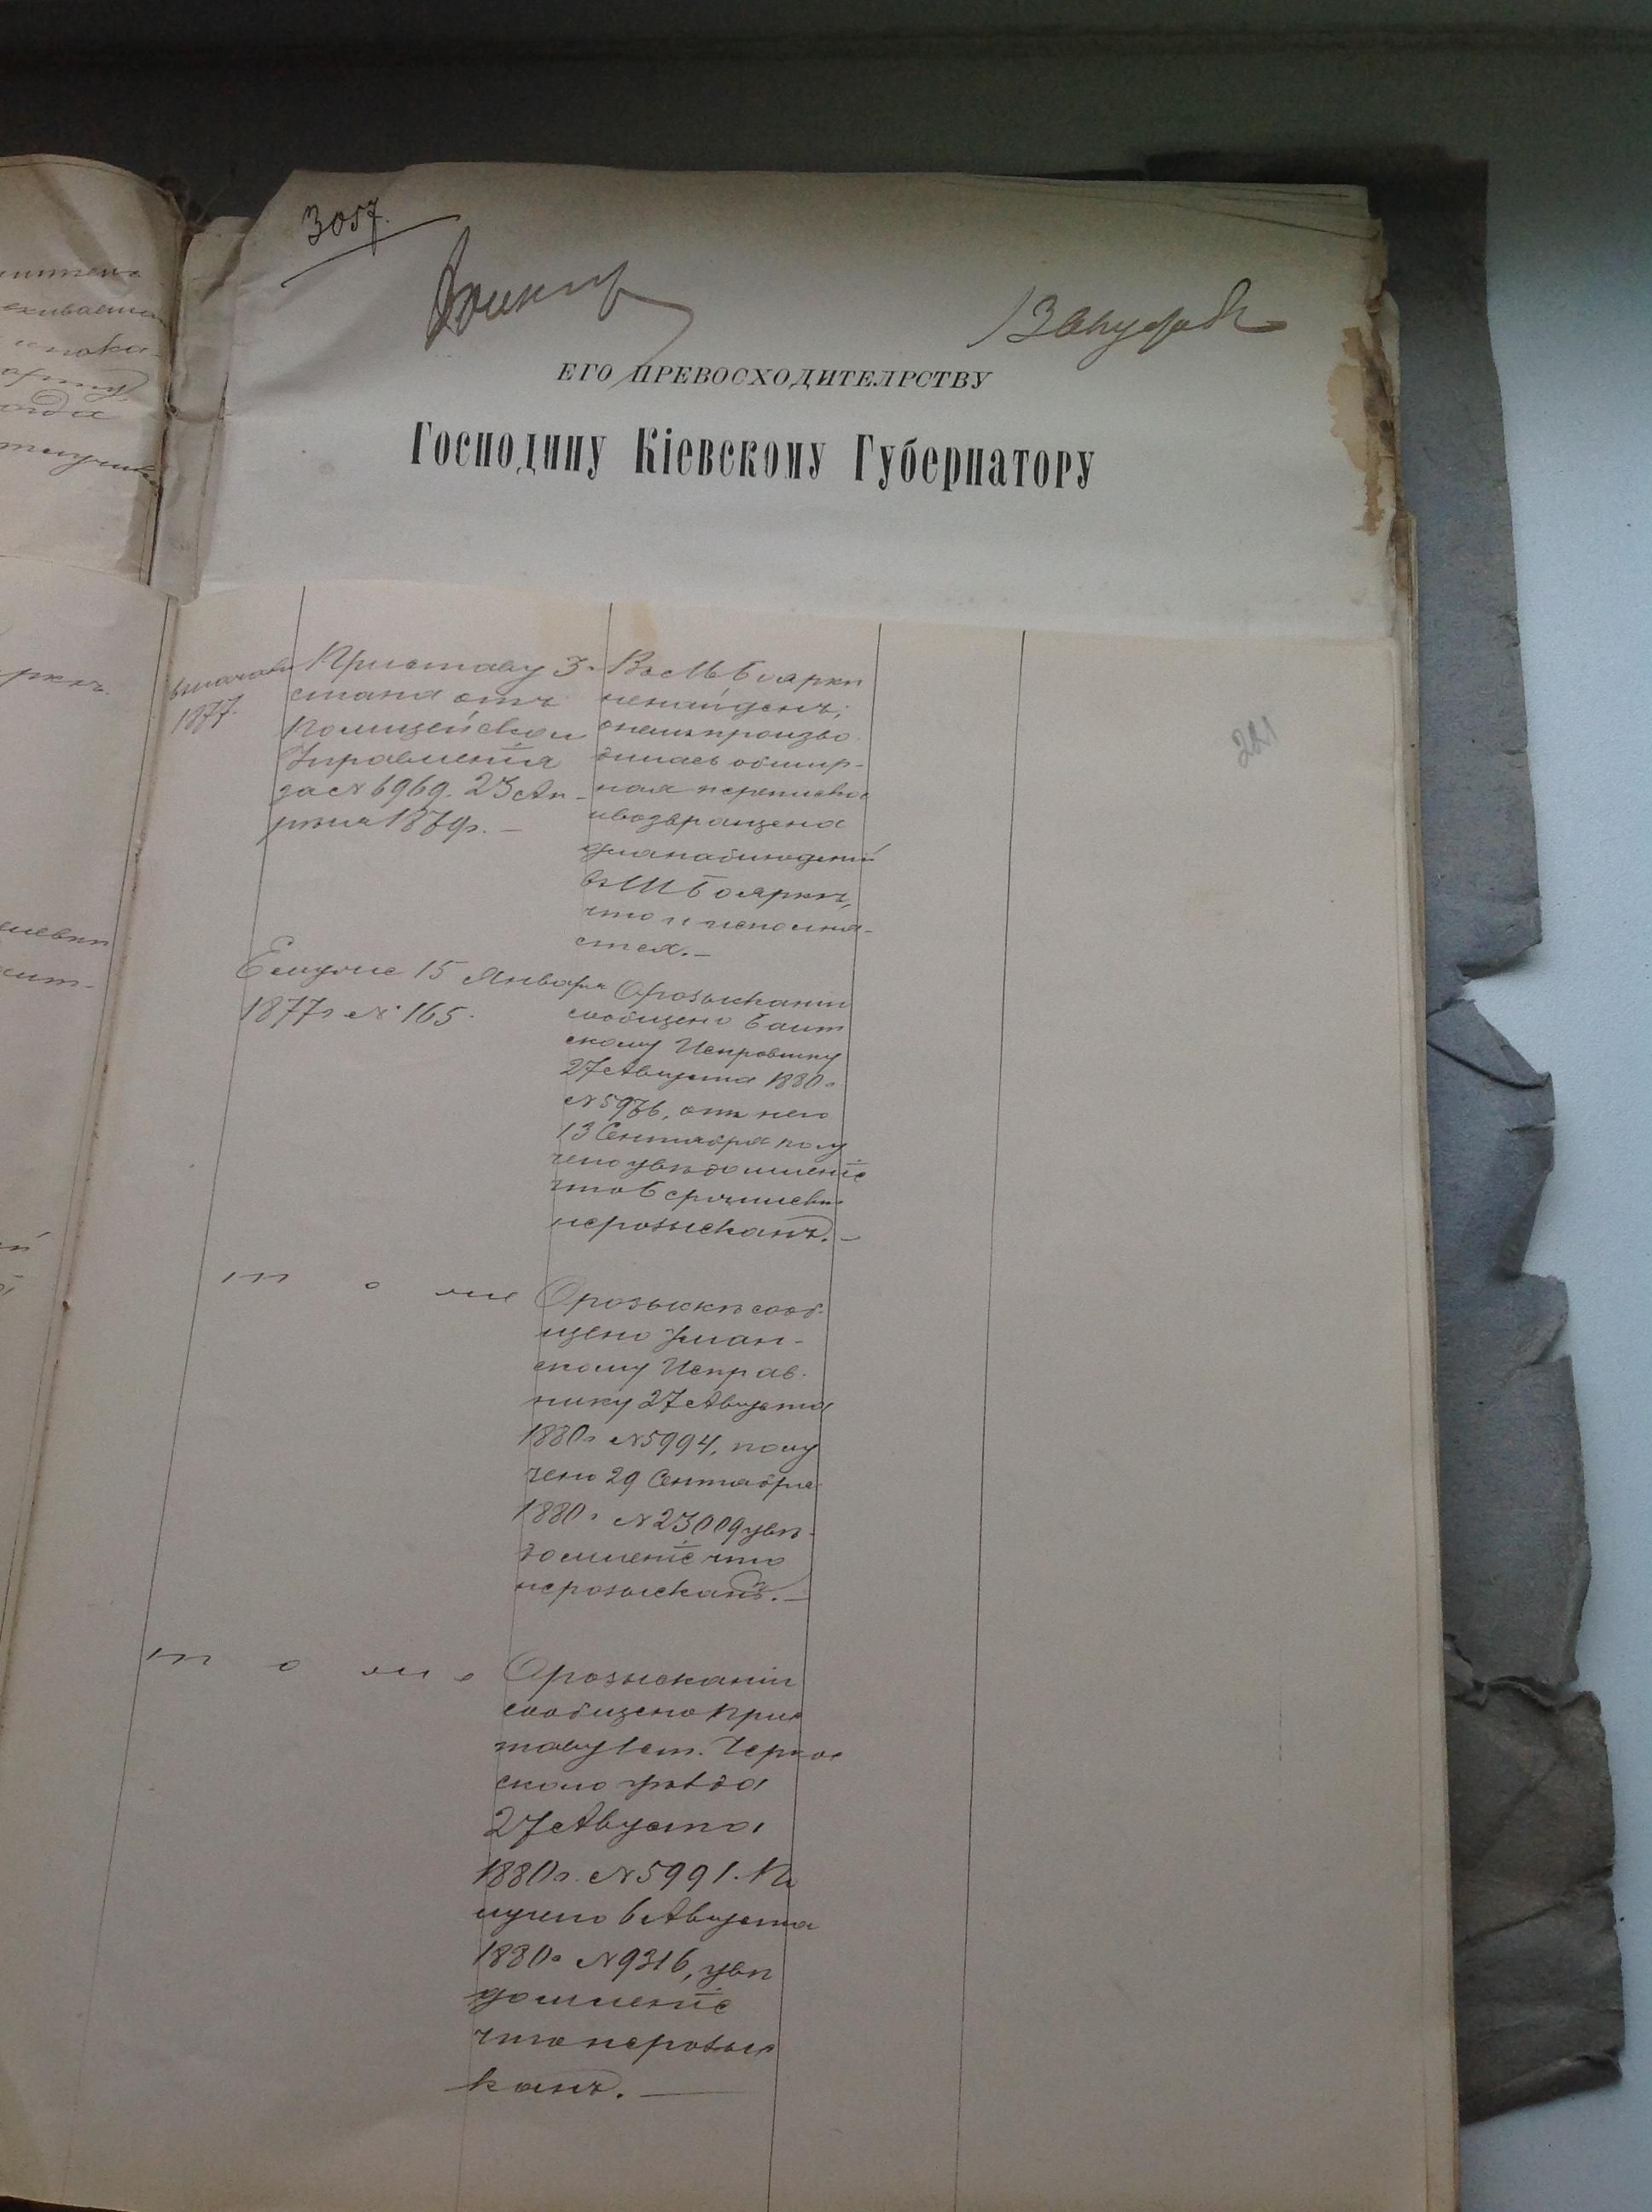 3057.
ЕГО ПРЕВОСХОДИТЕЛРСТВУ
Господину Кіевскому Губернатору
221
1877.
Приставу 3
стана отъ
Полицейскои
Управленія
за № 6969. 23 Ап
рѣля 1879г. —
Въ М Боярки
ненайденъ;
онемъ произво
дилась обшир-
ная переписка
ивозвращена
дланаблюденій
въ М Боярки,
что и исполня-
ется. —
Емуже 15 Января
1877г № 165.
Орозысканіи
сообщено Балт
скому Исправнику
27 Августа 1880г
№ 5976, отъ него
13 Сентября полу
чено увѣдомленіе
что в
нерозысканъ. —
т о же
Орозыскѣ сооб-
щено Уман-
скому Исправ-
нику 27 Августа
1880г № 5994, полу
чено 29 Сентября
1880г № 23009 увѣ-
домленіе что
нерозысканъ. —
т о же
Орозысканіи
сообщено Прис
таву 1 ст. Черкас
скаго уѣзда
27 Августа
1880г. № 5991. По
лучено 6 Августа
1880г № 9316, увѣ
домленіе
что нерозыс
канъ. —